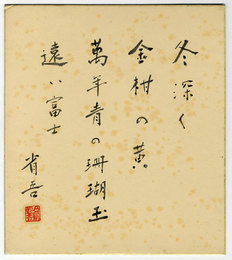 冬深く
金柑の黄
萬年青の珊瑚玉
遠い富士
省吾